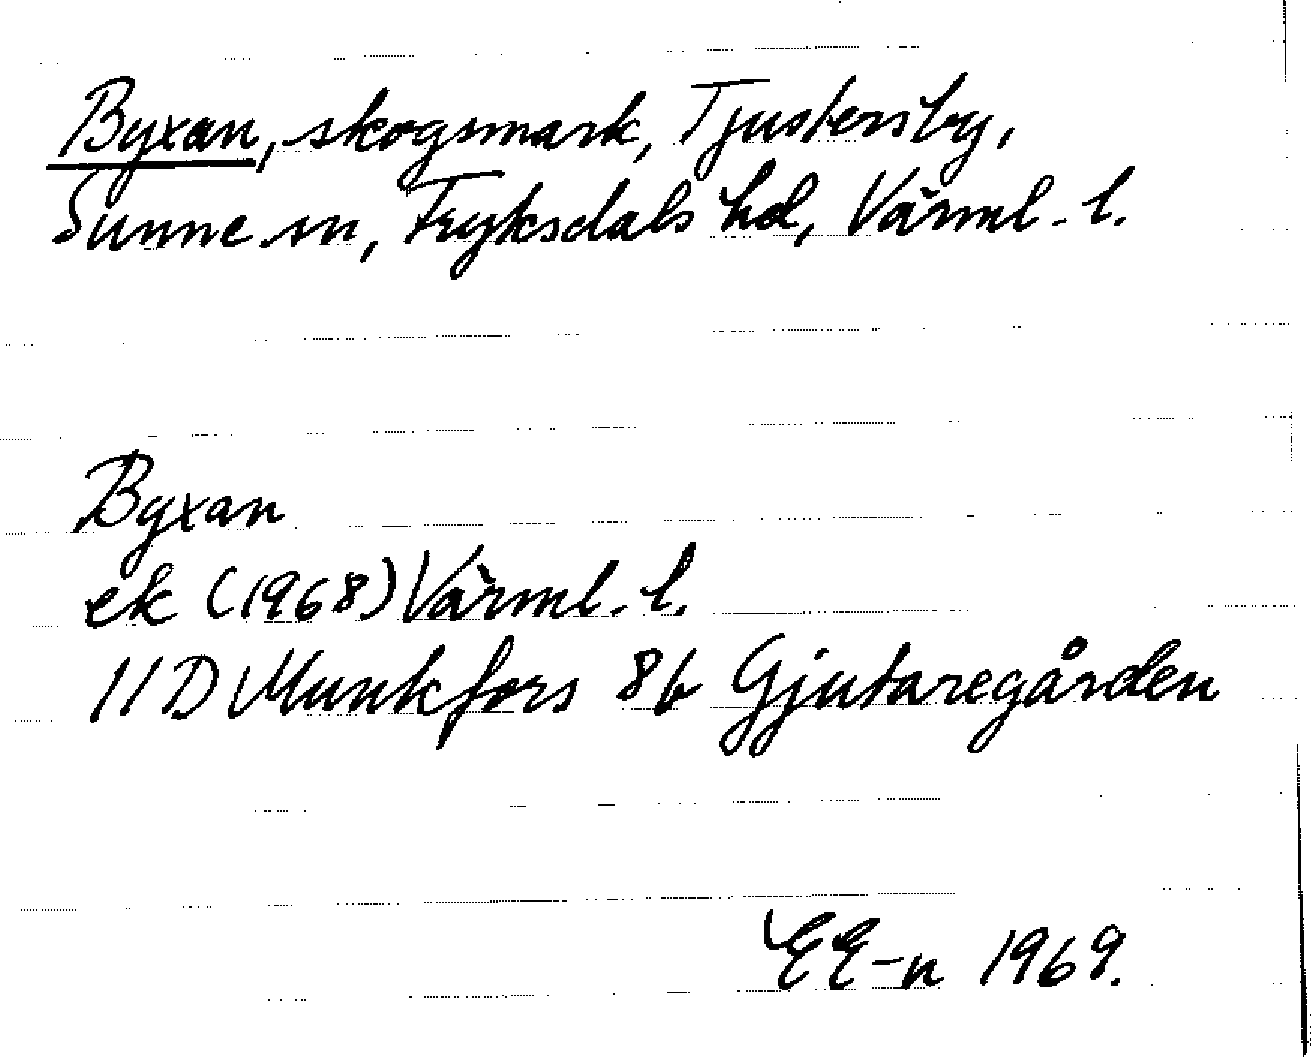 Byxan, skogsmark, Tjustersby,
Sunne sn, Fryksdals hd, Värml. l.
Byxan
ek (1968) Värml. l.
11D Munkfors 8b Gjutaregården
EE-n 1969.